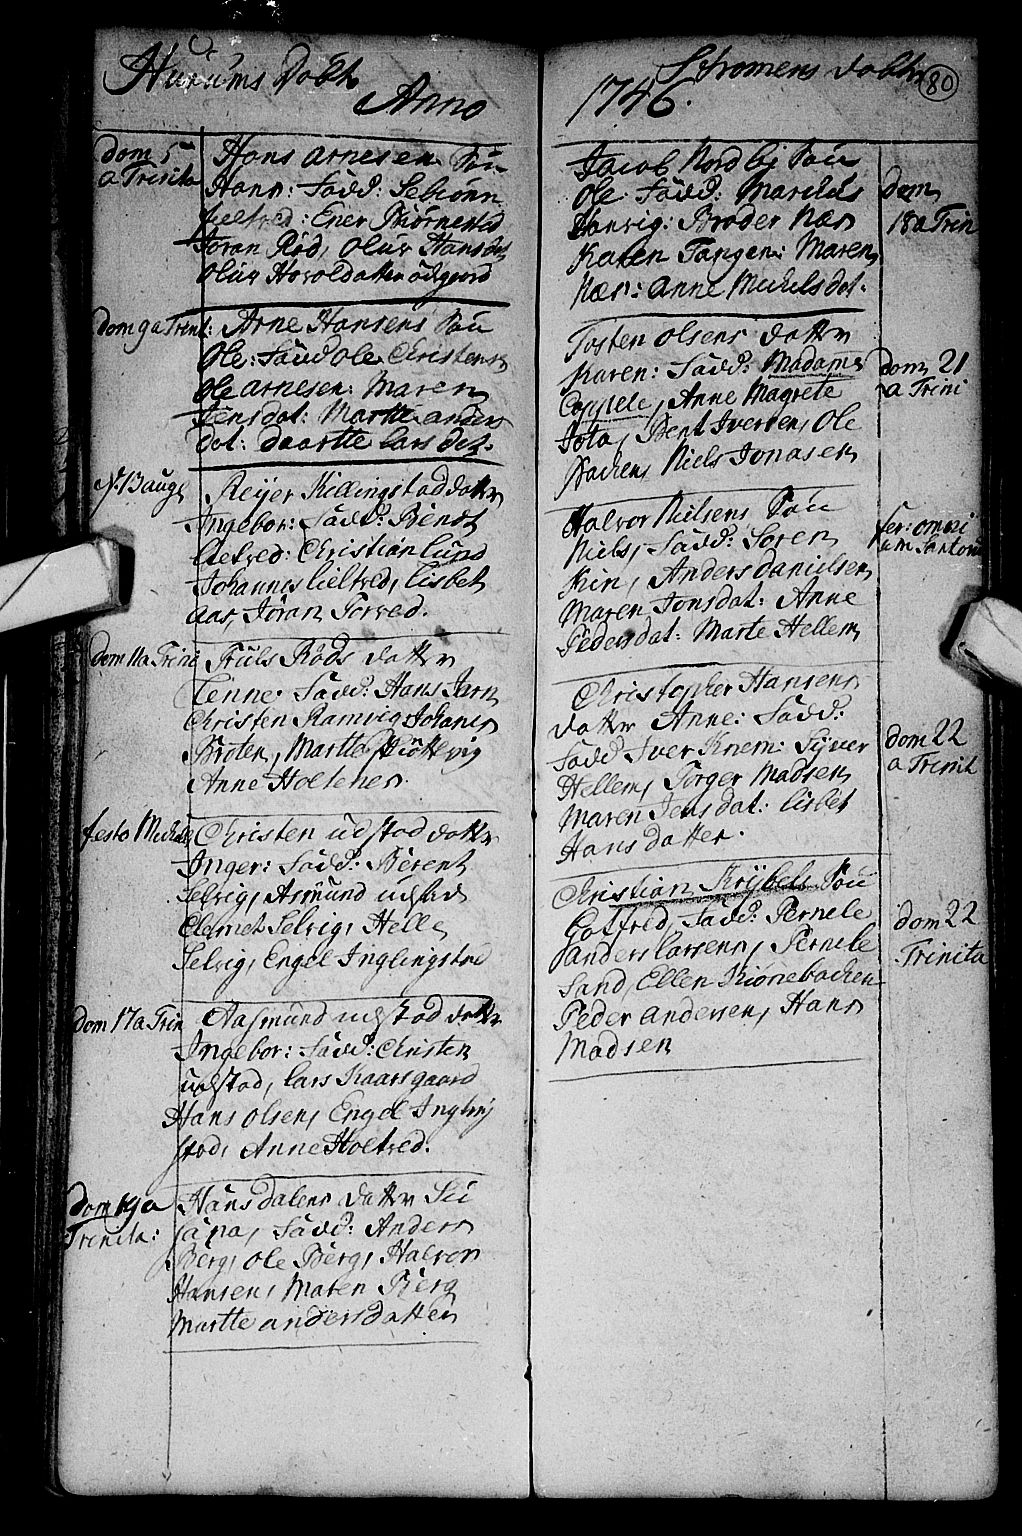 Hurums Døbte
Anno
dom 5
a Trinita
Hans Arnesen Søn
Hans: Fadd:
Ener Biørnsted
Joran Rød, Oluv Hansdat
Oluv Haroldatter ødegaard
Dom 9 a Trinit:
Arne Hansens Søn
Ole: Fadd Ole Christens
Ole Arnesen: Maren
Jensdat: Marte anders
dat: Daartte Lars dat.
d. 13 aug
Reijer Killingstad datter
Ingebor: Fadd: Bendt
Christian Lund
Johannes Lieltred, Lisbet
Aas, Jöran Torved.
dom 11 a Trini
Truls Røds datter
Lenne. Fadd: Hans Jørn
Christen Ramvig Johanes
Broten, Martte Støttvig
Anne Holtener.
festo Michael
Christen udstad datter
Inger: Fadd: Berent
Selvig, Asmund udstad
Clemet Selvig, Helle
Selvig, Engel Inglingstad
dom 17 a Trin
Aasmund udstad datter
Ingebor: Fadd: Christen
udstad, Lars Kaarsgaard
Hans Olsen, Engel Inglings
stad, Anne Holtved.
dom 19 a
Trinita:
Hans dalens datter Su
Fadd: Anders
Berg, Ole Berg, Halvor
Hansen, Maren Berg
Martte andersdatter
Strømens døbte
80
1746.
Jacob Nordbij Søn
Ole: Fadd: Marcus
Hanvig: Broder Næs
Karen Tangen: Maren
Næs: Anne Michelsdat.
dom
18 a Trin
Tosten Olsens datter
Karen: Fadd: Madame
Coppele, Anne Magrete
Tofa, Bent Iversen, Ole
Bachen, Niels Jonasen
dom 21
a Trini
Halvor Nielsens Søn
Niels, Fadd: Soren
Kin, Anders Danielsen
Maren Jonsdat: Anne
Pedersdat: Marte Hellem
fer: omni
um Santorum
Christopher Hansens
datter Anne: Fadd:
Fadd Iver Knem: Syver
Hellem, Torger Madsen
Maren Jensdat: Lisbet
Hansdatter.
dom 22
a Trinit
Christian Krijbels Søn
Gotfred, Fadd: Pernele
anders Larsen, Pernele
Sand, Ellen Kionebachen
Peder Andersen, Hans
Madsen
dom 22
Trinita